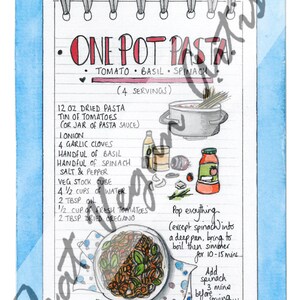 ONE POT PASTA
• TOMATO • BASIL • SPINACH •
(4 SERVINGS)
12 OZ DRIED PASTA
TIN OF TOMATOES
(OR JAR OF PASTA SAUCE)
1 ONION
4 GARLIC CLOVES
HANDFUL OF BASIL
HANDFUL OF SPINACH
SALT & PEPPER
VEG STOCK CUBE
4 ½ CUPS OF WATER
2 TBSP OIL
½ CUP OF TOMATOES
2 TBSP DRIED OREGANO
Pop everything
(except spinach) into
a deep pan, bring to
boil then simmer
for 10-15 mins...
Add
spinach
3 mins
before
That Vegan Artist